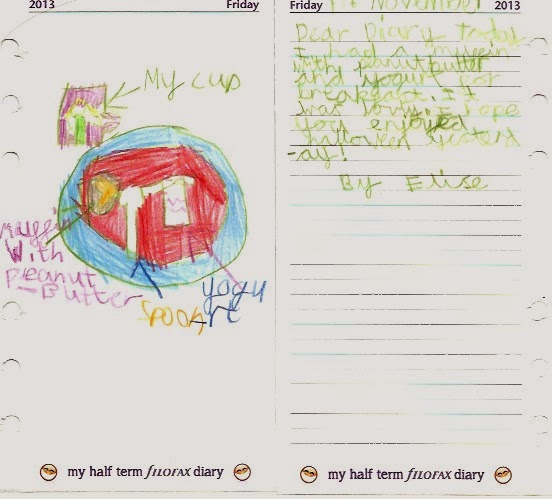 2013 Friday
My cup
Muffin
With
Peanut
-Butter
Spoon
yogu
rt
my half term FILOFAX diary
Friday 1st November 2013
Dear Diary today
I had a muffin
with peanutbutter
and yogurt for
breakfast. I
was
you enjoyed
haloween yesterd
-ay!
By Elise
my half term FILOFAX diary